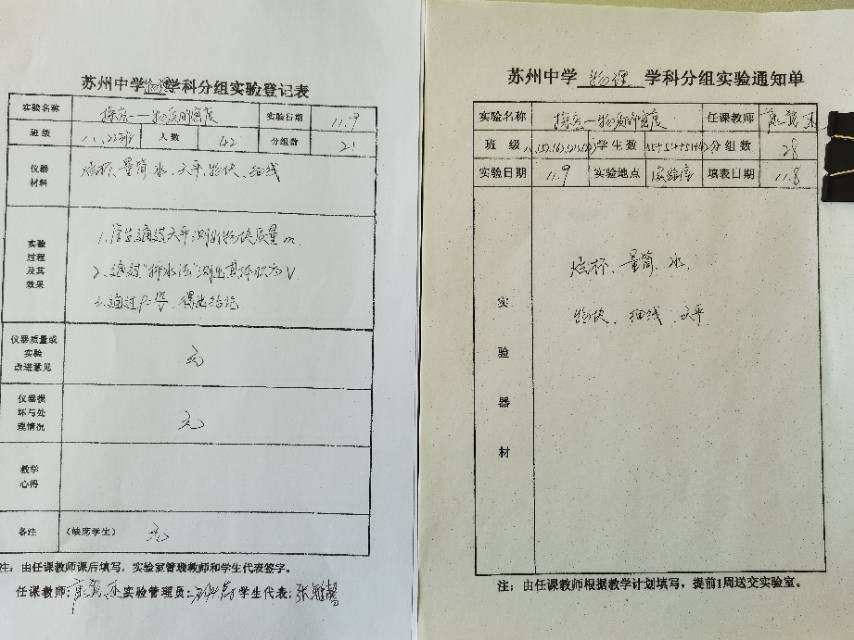 苏州中学物理学科分组实验登记表
实验名称 探究——物质的密度 实验日期 11.9
班级 人数 42 分组数 21
仪器材料 烧杯、量筒、水、天平、物块、细线
实验过程及其效果
1.学生通过天平测出物块质量m.
2.通过"排水法"测出其体积为V
3.通过 得出结论
仪器质量或实验改进意见 无
仪器损坏与处理情况 无
教学心得
备注 (缺席学生) 无
注:由任课教师课后填写,实验室管理教师和学生代表签字。
任课教师: 实验管理员: 学生代表:
苏州中学 物理 学科分组实验通知单
实验名称 探究——物质的密度 任课教师
班级 学生数 分组数 28
实验日期 11.9 实验地点 实验室 填表日期 11.8
实验器材
烧杯、量筒、水、
物块、细线、天平
注:由任课教师根据教学计划填写,提前1周送交实验室。